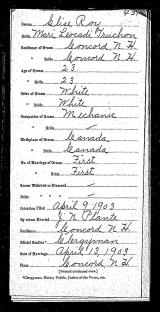 Groom, Elise Roy
Bride, Mari Leocadi Truchon
Residence of Groom Concord N.H.
" " Bride Concord N.H.
Age of Groom 23
" " Bride 23
Color of Groom White
" " Bride White
Occupation of Groom Mechanic
" " Bride
Birthplace of Groom Canada
" " Bride Canada
No. Marriage of Groom First
" " Bride First
Groom Widowed or Divorced
Bride " "
Intention Filed April 9 1903
By whom Married J. N. Plante
Residence Concord N.H.
Official Station* Clergyman
Date of Marriage April 13, 1903
Place " Concord N.H.
(Sexton continued over.)
*Clergyman, Notary Public, Justice of the Peace, etc.